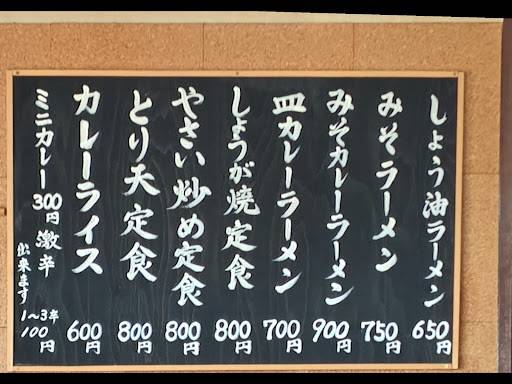 しょう油ラーメン 650円
みそラーメン 750円
みそカレーラーメン 900円
皿カレーラーメン 700円
しょうが焼定食 800円
やさい炒め定食 800円
とり天定食 800円
カレーライス 600円
ミニカレー 300円 激辛
出来ます 1〜3辛 100円